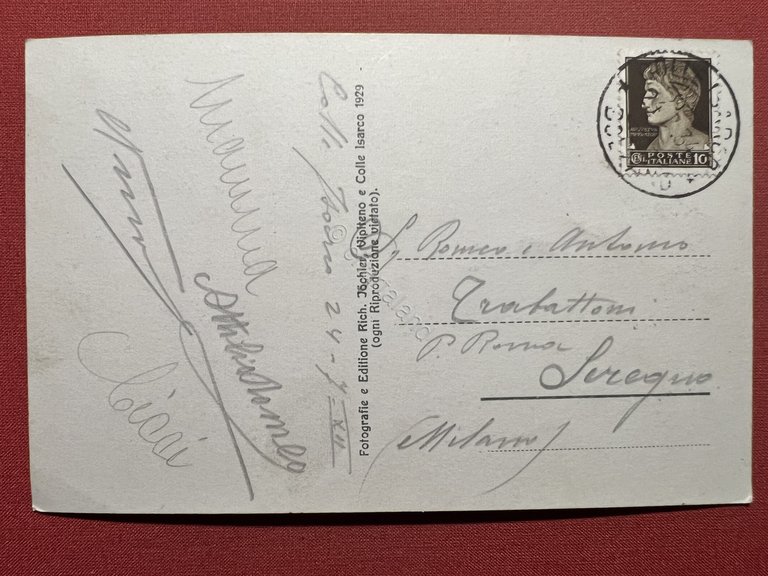 Colle Isarco 24-7-XII
Mamma
Cicci
Fotografie e Editione Rich. Jöchler, Vipiteno e Colle Isarco 1929 -
(ogni Riproduzione vietato).
POSTE
ITALIANE 10
Romeo e Antonio
Trabattoni
P. Roma
Seregno
(Milano)